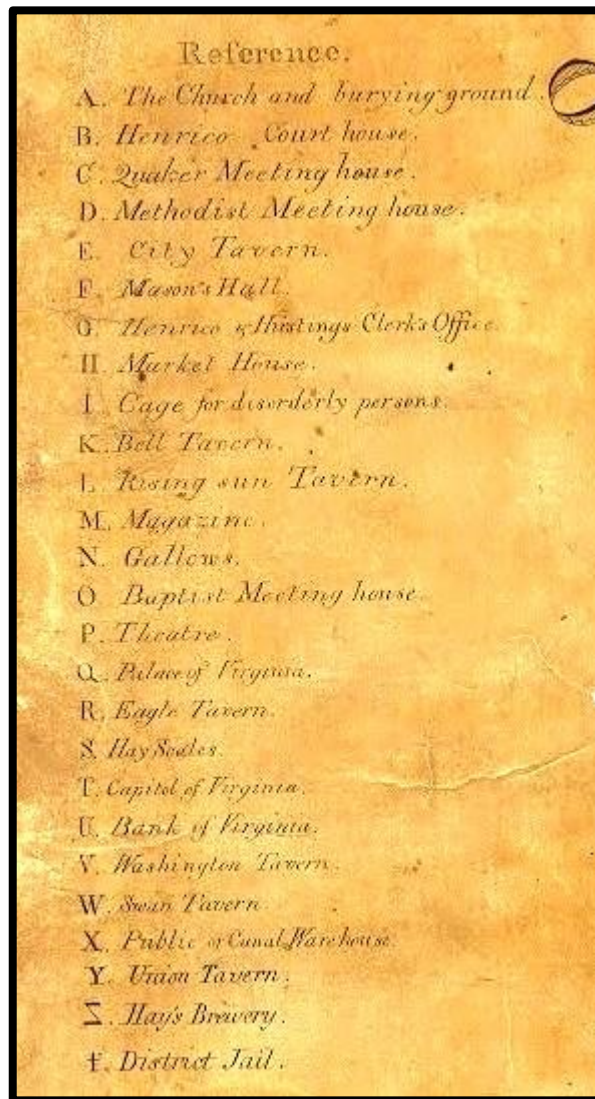 Reference.
A. The Church and burying ground.
B. Henrico Court house.
C. Quaker Meeting house.
D. Methodist Meeting house.
E. City Tavern.
F. Mason's Hall.
G. Henrico & Hustings Clerk's Office.
H Market House.
I Cage for disorderly persons.
K. Bell Tavern.
L. Rising sun Tavern.
M. Magazine.
N. Gallows.
O. Baptist Meeting house.
P. Theatre.
Q. Palace of Virginia.
R. Eagle Tavern.
S. Hay Scales.
T. Capitol of Virginia.
U. Bank of Virginia.
V. Washington Tavern.
W. Swan Tavern.
X. Public or Canal Warehouse.
Y. Union Tavern.
Z. Hay's Brewery.
Ɨ. District Jail.